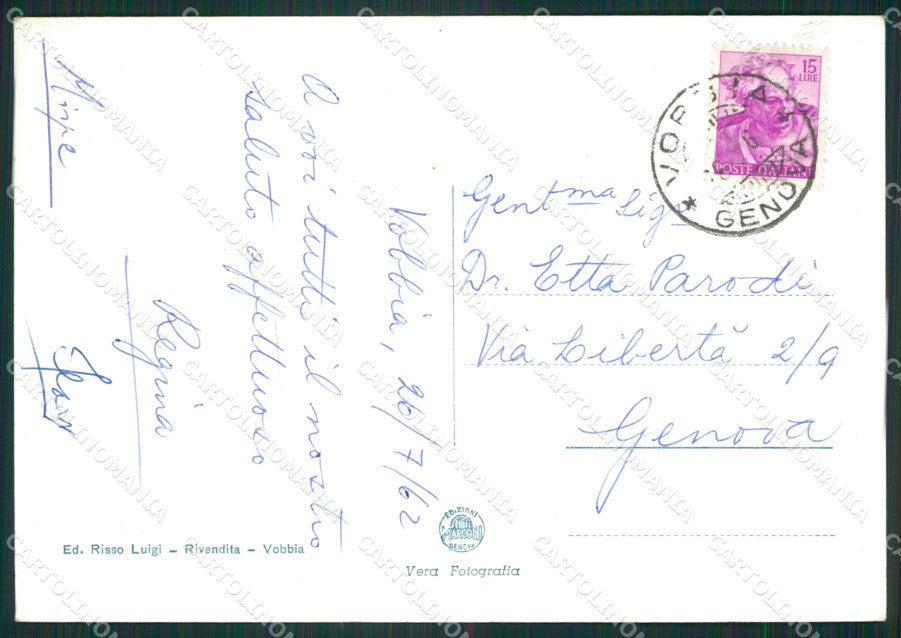 Vobbia, 26/7/62
A voi tutti il nostro
saluto affettuoso
Regina
Mispe
Gent ma Sig ra
Dr. Etta Parodi
Via Libertà 2/9
Genova
15
LIRE
POSTE ITALIANE
GENOVA
Ed. Risso Luigi - Rivendita - Vobbia
EDIZIONI
MARCONI
GENOVA
Vera Fotografia
CARTOLINOMANIA